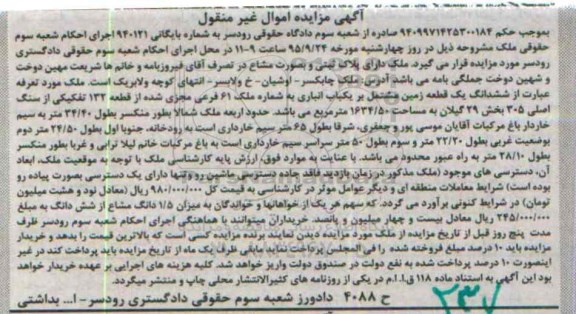 آگهی مزایده اموال غیر منقول
بموجب حکم ۹۴۰۹۹۷۱۴۲۵۳۰۰۱۸۴ صادره از شعبه سوم دادگاه حقوقی رودسر به شماره بایگانی ۹۴۰۱۲۱ اجرای احکام شعبه سوم
حقوقی ملک مشروحه ذیل در روز چهارشنبه مورخه ۹۵/۹/۲۴ ساعت ۹-۱۱ در محل اجرای احکام شعبه سوم حقوقی دادگستری
رودسر مورد مزایده قرار می گیرد. ملک دارای پلاک ثبتی و بصورت مشاع در تصرف آقای فیروزنامه و خانم ها شریعت مهین دوخت
و شهین دوخت جملگی نامه می باشد آدرس: ملک چابکسر- اوشیان- خ ولابسر- انتهای کوچه ولابریک است. ملک مورد تعرفه
عبارت از ششدانگ یک قطعه زمین مشتمل بر یکباب انباری به شماره ملک ۶۱ فرعی مجزی شده از قطعه ۱۳۲ تفکیکی از سنگ
اصلی ۳۰۵ بخش ۲۹ گیلان به مساحت ۱۶۳۴/۵۰ مترمربع می باشد. حدود اربعه ملک شمالا بطور منکسر بطول ۳۴/۴۰ متر به سیم
خاردار باغ مرکبات آقایان موسی پور و جعفری، شرقا بطول ۶۵ متر سیم خارداری است به رودخانه، جنوبا اول بطول ۲۴/۵۰ متر دوم
بوضعیت غربی بطول ۲۲/۲۰ متر و سوم بطول ۵۰ متر سراسر سیم خارداری است به باغ مرکبات خانم لیلا ترابی و غربا بطور منکسر
بطول ۲۸/۱۰ متر به راه عبور محدود می باشد. با عنایت به موارد فوق، ارزش پایه کارشناسی ملک با توجه به موقعیت ملک، ابعاد
آن، دسترسی های موجود (ملک مذکور در زمان بازدید فاقد جاده دسترسی ماشین رو و تنها دارای یک دسترسی بصورت پیاده رو
بوده است) شرایط معاملات منطقه ای و دیگر عوامل موثر در کارشناسی به قیمت کل ۹۸۰/۰۰۰/۰۰۰ ریال (معادل نود و هشت میلیون
تومان) در شرایط کنونی برآورد می گردد. که سهم هر یک از خواهانها و خواندگان به میزان ۱/۵ دانگ مشاع از شش دانگ به مبلغ
۲۴۵/۰۰۰/۰۰۰ ریال معادل بیست و چهار میلیون و پانصد. خریداران میتوانند با هماهنگی اجرای احکام شعبه سوم رودسر ظرف
مدت پنج روز قبل از تاریخ مزایده از ملک مورد مزایده دیدن نمایند برنده مزایده کسی است که بالاترین قیمت را بدهد و خریدار
مزایده باید ۱۰ درصد مبلغ فروخته شده را فی المجلس پرداخت نماید مابقی ظرف یک ماه از تاریخ مزایده باید پرداخت کند در غیر
اینصورت ۱۰ درصد پرداخت شده به نفع دولت در صندوق دولت واریز خواهد شد. کلیه هزینه های اجرایی بر عهده خریدار خواهد
بود این آگهی به استناد ماده ۱۱۸ ق.ا.ا.م در یکی از روزنامه های کثیرالانتشار محلی چاپ و منتشر میگردد.
ح ۴۰۸۸ دادورز شعبه سوم حقوقی دادگستری رودسر- ا... بداشتی
۲۳۷